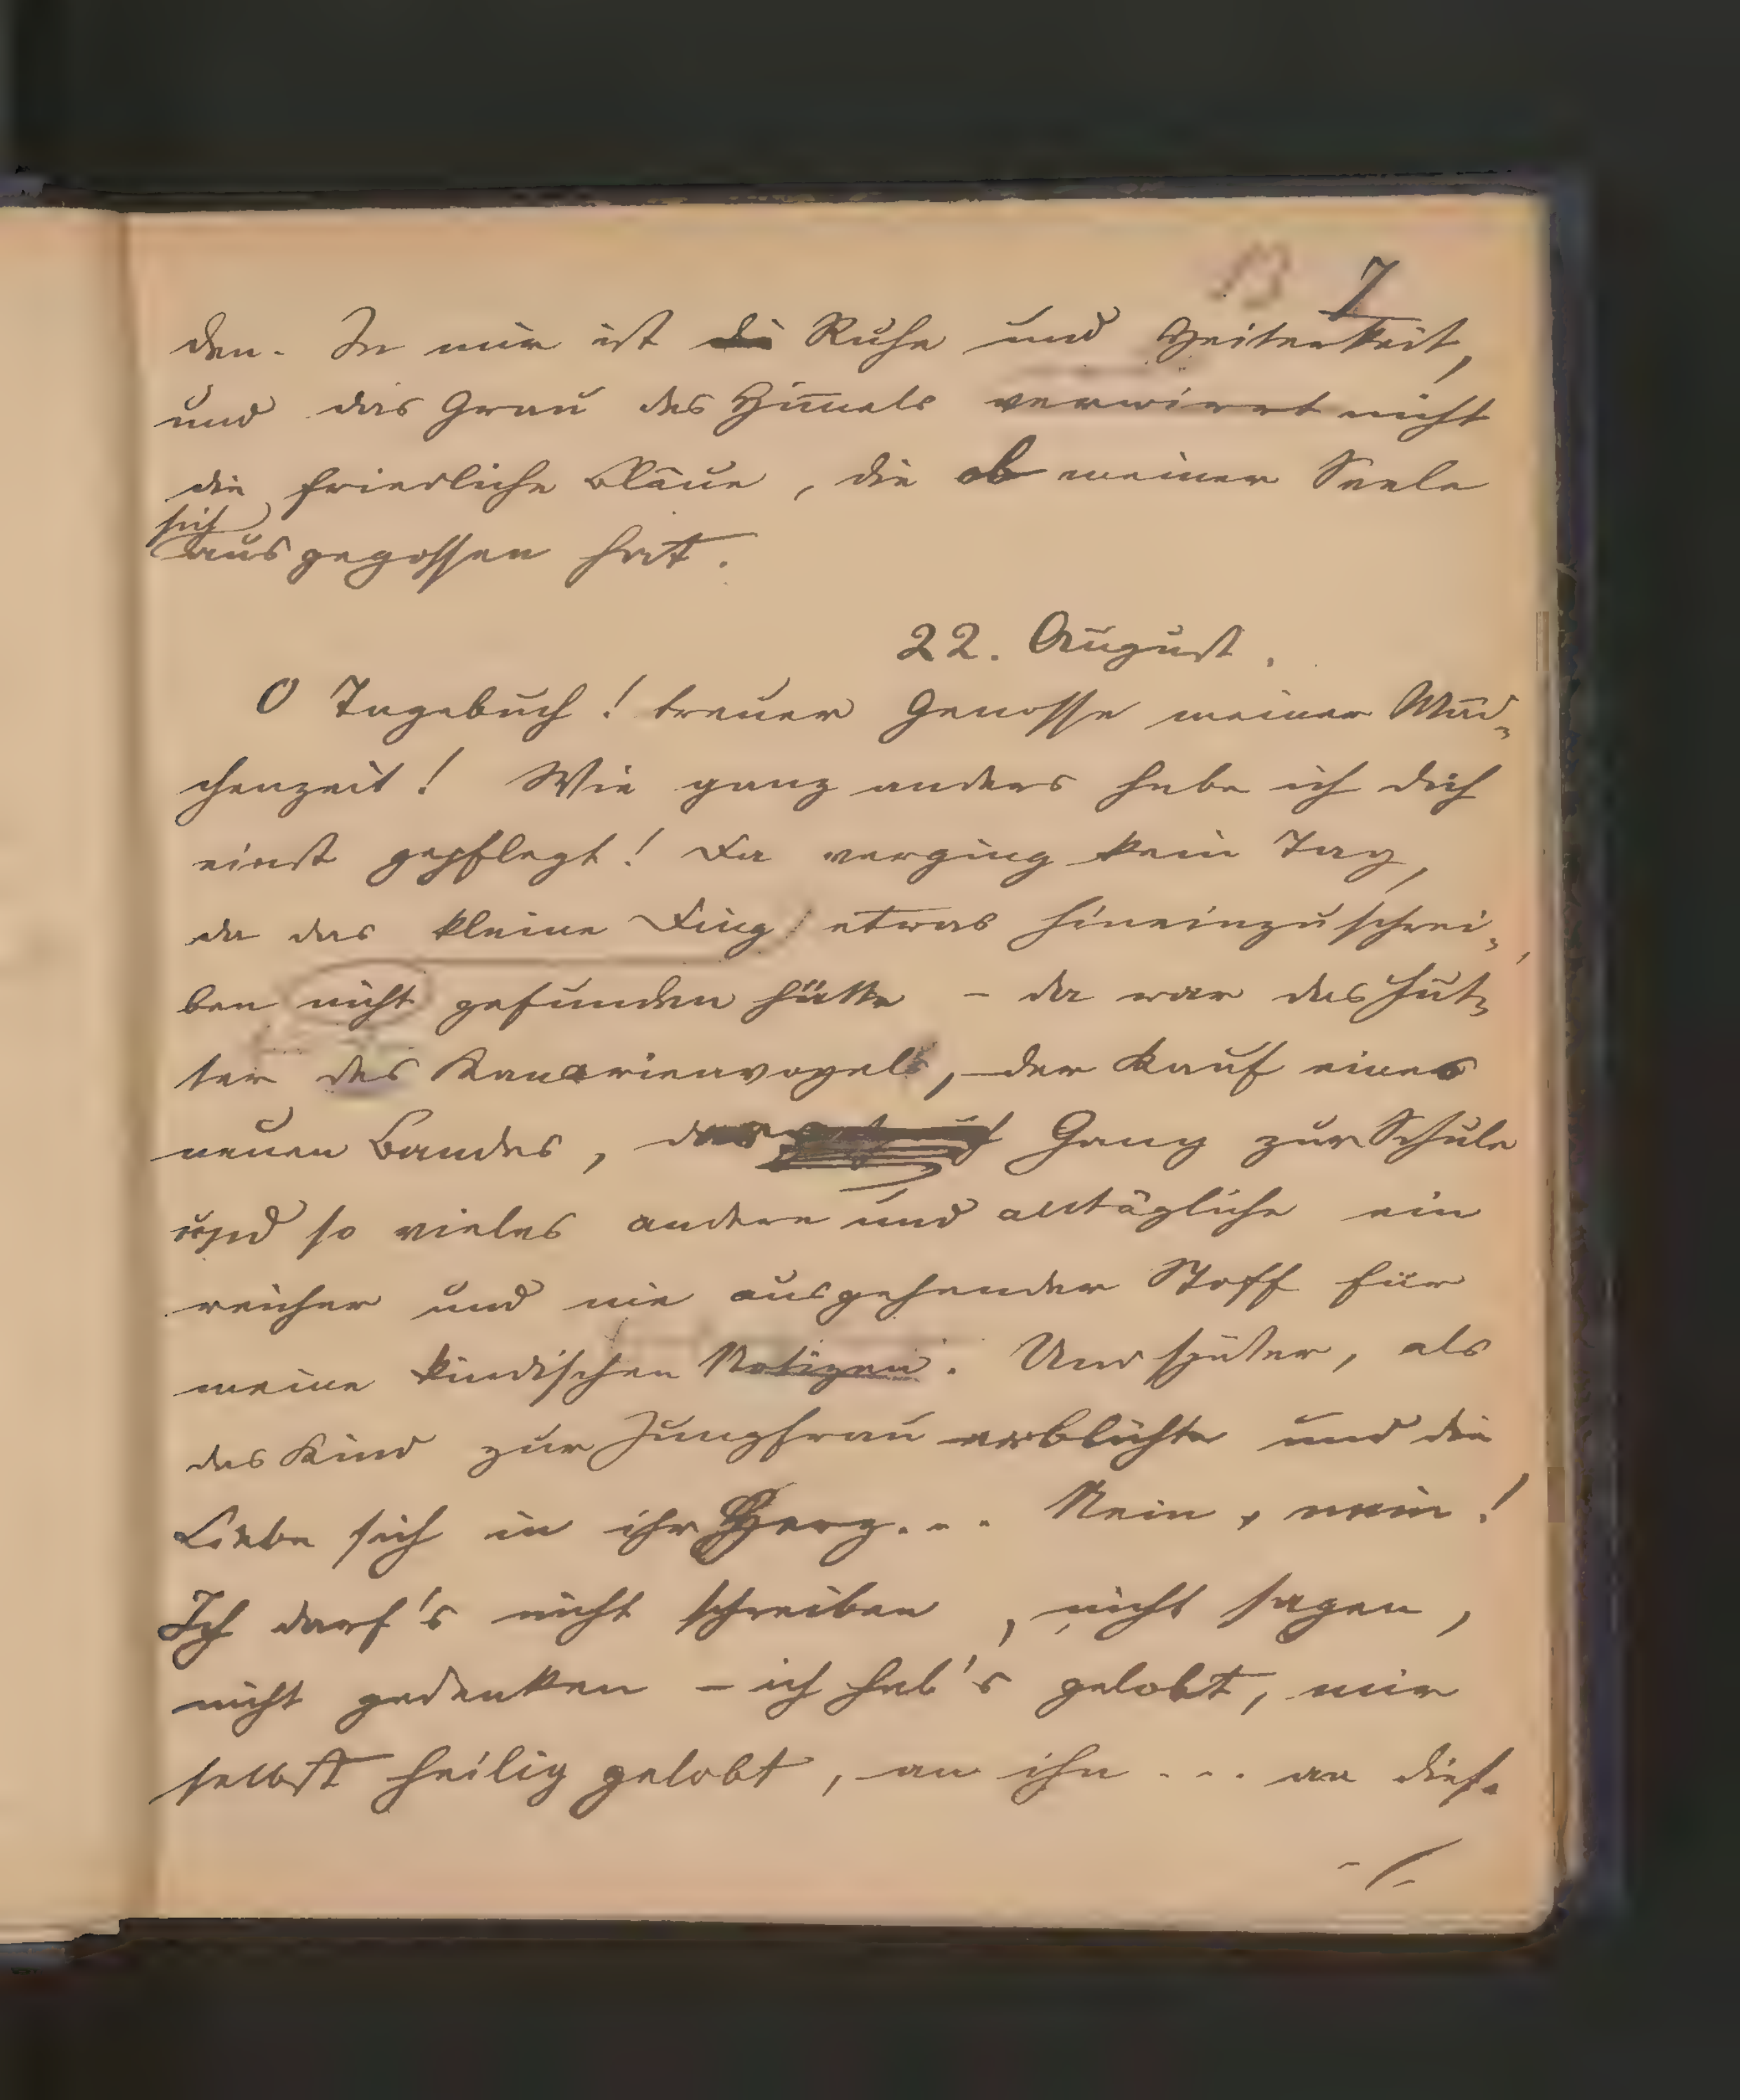 13 7
den. In mir ist die Ruhe und Heiterkeit,
und das Grau des Him̄els verwirrt nicht
die friedliche Bläue, die ob meiner Seele
sich
ausgegossen hat.
22. August.
O Tagebuch! treuer Genosse meiner Mäd-
chenzeit! Wie ganz anders habe ich dich
einst gepflegt! Da verging kein Tag,
da das kleine Ding etwas hineinzuschrei-
ben nicht gefunden hätte – da war das Fut-
ter des Kanarienvogels, der Kauf eines
neuen Bandes, der Gang zur Schule
und so vieles andere und alltägliche ein
reicher und nie ausgehender Stoff für
meine kindischen Notizen. Und später, als
das Kind zur Jungfrau erblühte und die
Liebe sich in ihr Herz... Nein, nein!
Ich darf's nicht schreiben, nicht sagen,
nicht gedenken – ich hab's gelobt, mir
selbst heilig gelobt, an ihn ... an diese